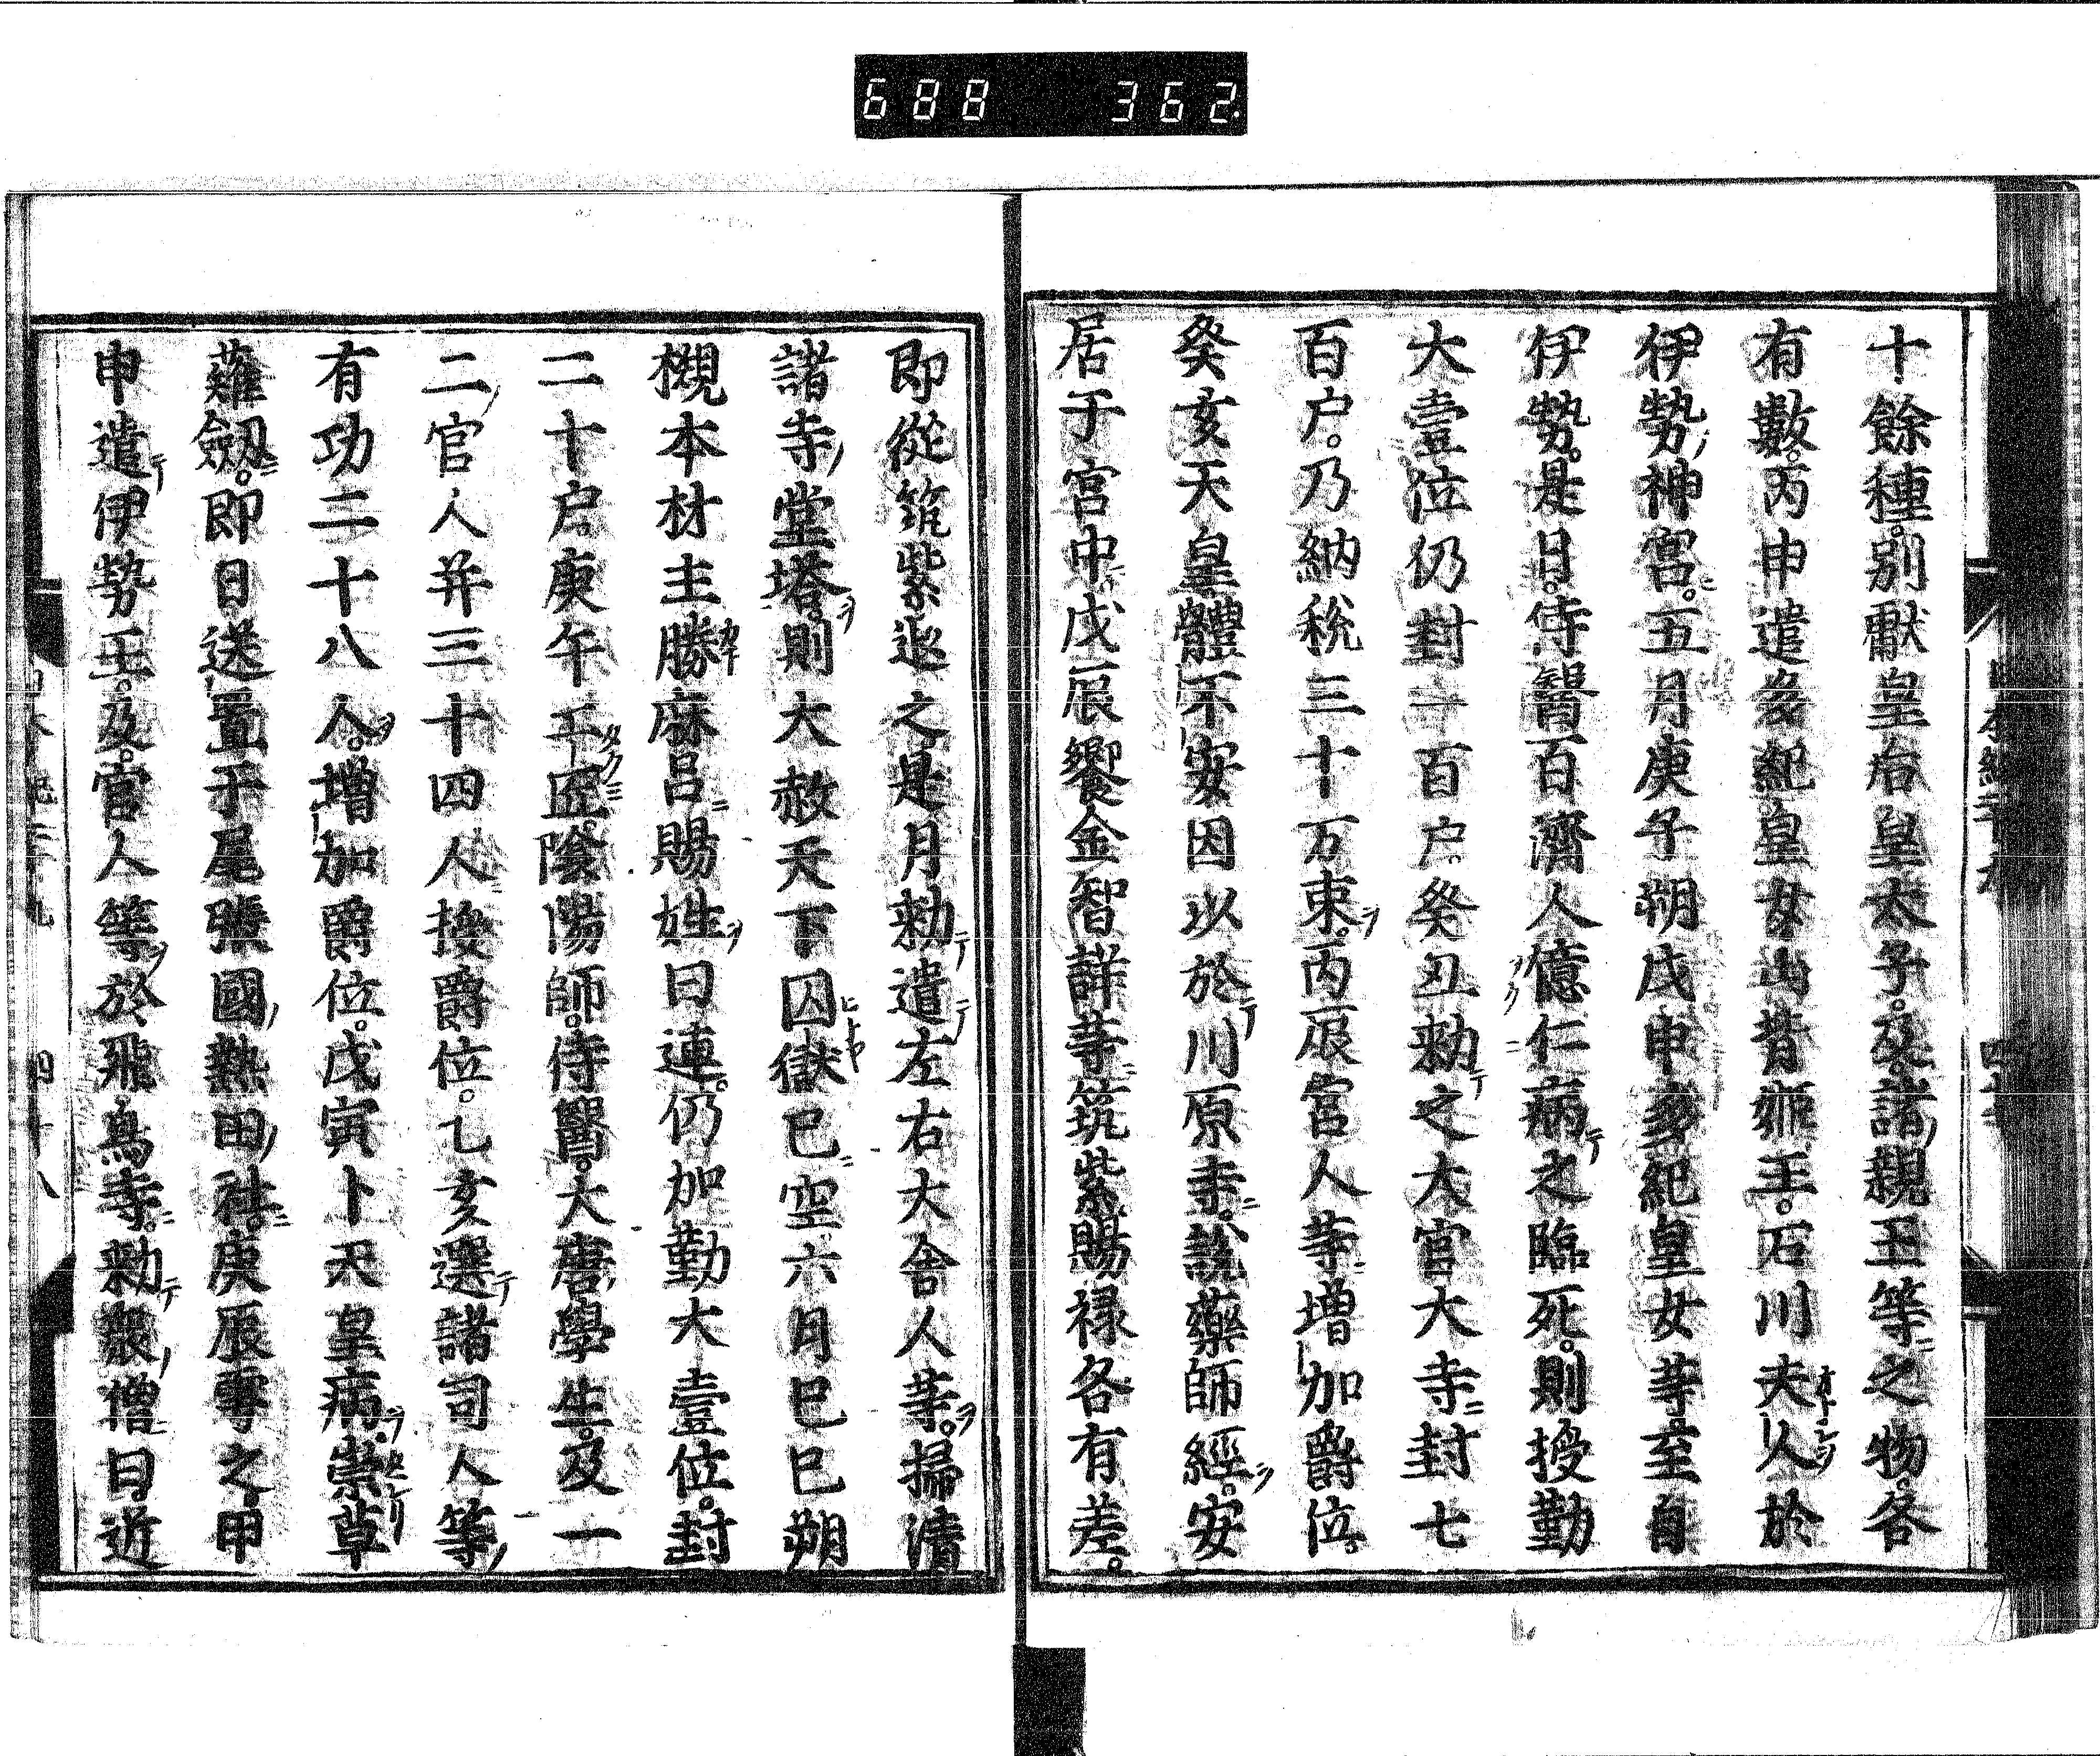 688 362
十餘種。別獻皇后皇太子。及諸親王等之物。各
有數。丙申遣多紀皇女山背姬王。石川夫人於
伊勢神宮。五月庚子朔戊申多紀皇女等至自
伊勢。是日。侍醫百濟人億仁病之臨死。則授勤
大壹位仍封一百户。癸丑勅之大官大寺封七
百户。乃納税三十万束。丙辰宮人等増加爵位。
癸亥天皇體不安因以於川原寺。説藥師經。安
居于宮中。戊辰饗金智詳等筑紫賜禄各有差。
即從筑紫退之是月勅遣左右大舍人等。掃清
諸寺堂塔。則大赦天下囚獄已空六月己巳朔
槻本村主勝麻呂賜姓曰連。仍加勤大壹位。封
二十户庚午工匠。陰陽師。侍醫。大唐學生。及一
二官人并三十四人授爵位。乙亥選諸司人等
有功二十八人。増加爵位。戊寅卜天皇病。祟草
薙劒。即日送置于尾張國熱田社。庚辰雩之。甲
申遣伊勢王。及。官人等於飛鳥寺。勅衆僧曰。近